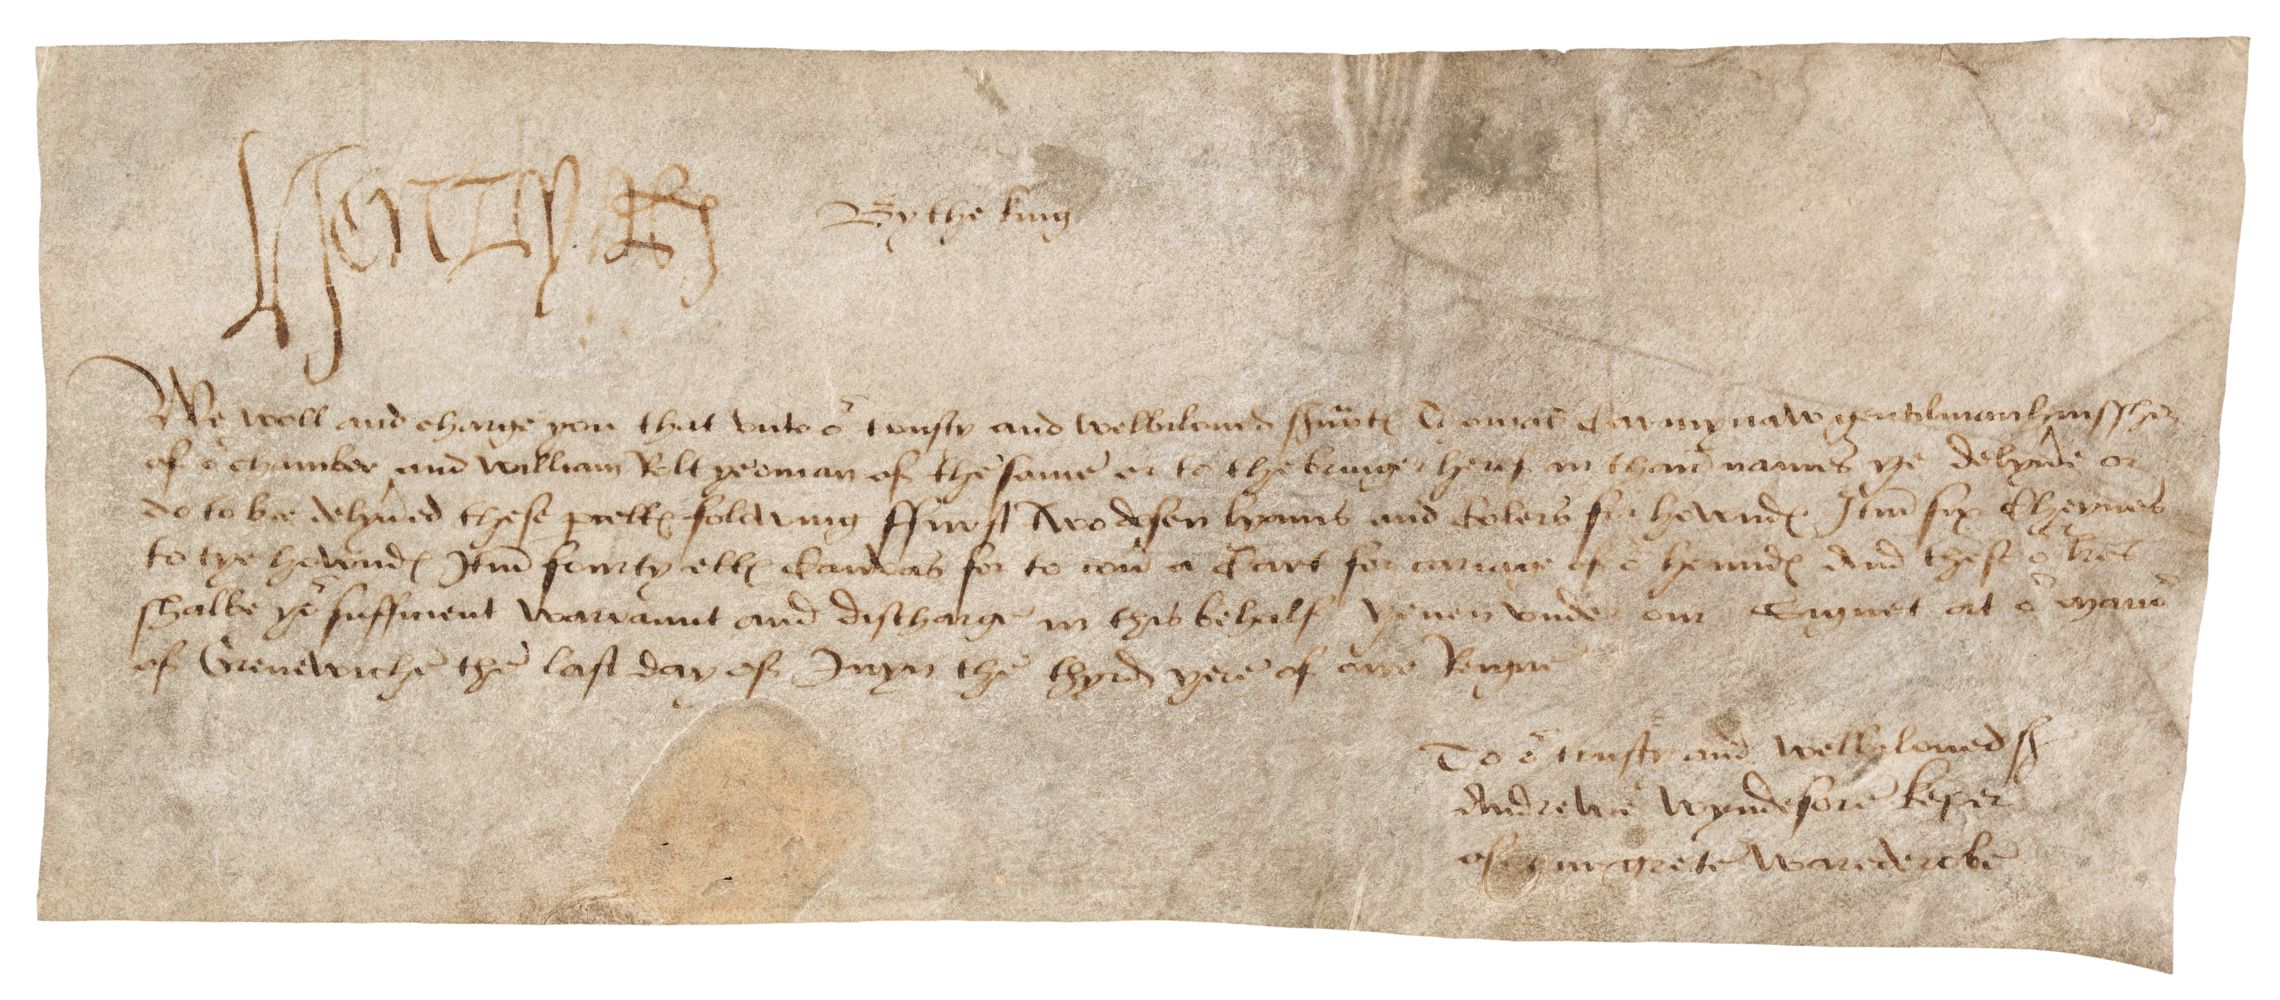 Henry R
By the king
We woll and charge you that vnto oʳ trusty and welbiloued sʳuntꝭ Thomas Carmynaw gentilman huissher
of oʳ chamber and William Rolt yeoman of the same or to the bringer herof in thair names ye delyuʳe or
do to bee delyuʳed these pcellꝭ folowing ffurst two dosen lyams and Colers for hewndꝭ Itm̄ six Cheynes
to tye hewndꝭ Itm̄ fourty ellꝭ Canvas for to couʳ a Cart for cariage of oʳ houndꝭ And thes oʳ lr̄es
shalbe yoʳ sufficient warraunt and discharge in this behalf Yeuen vnder our Signet at oʳ Manoʳ
of Grenewiche the last day of Juyn the thyrd yere of owre Reigne
To oʳ trusty and wellbiloued sʳ
Andrewe Wyndesore keper
of our grete Warederobe